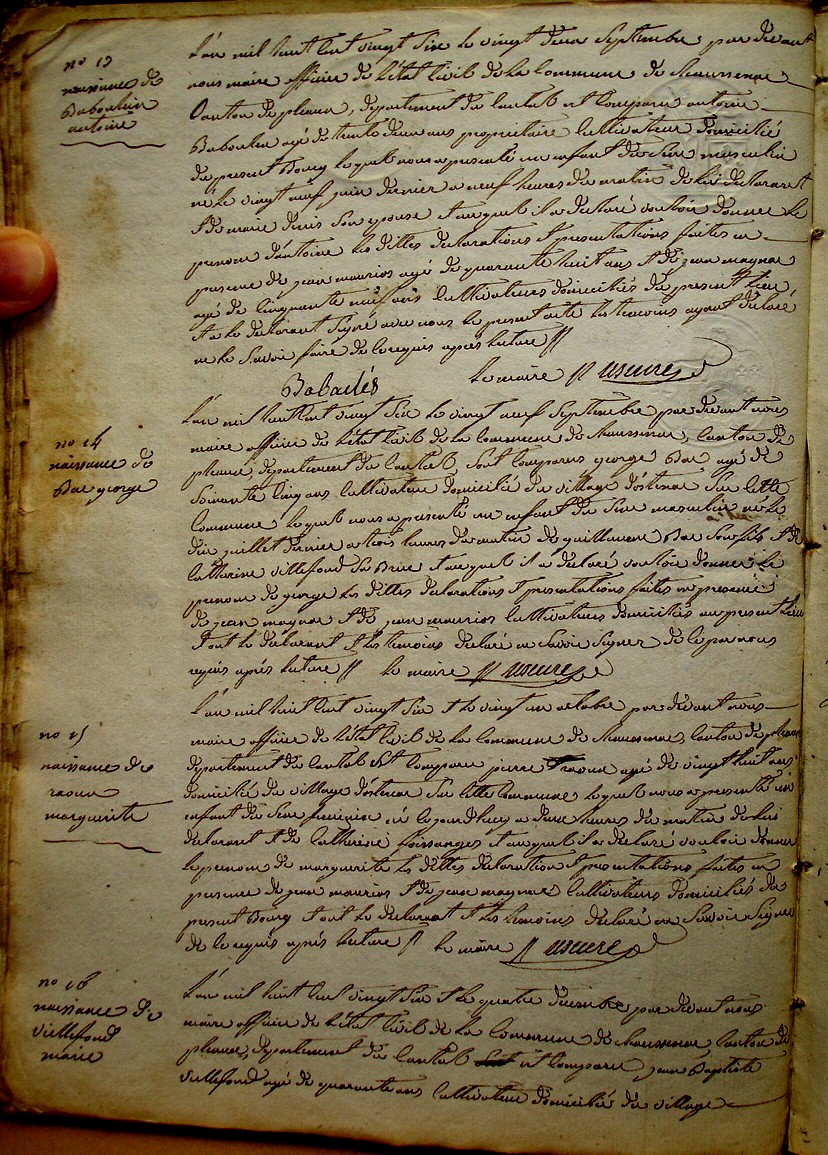 no 13
naissance de
Baboulin
antoine
L'an mil huit cent vingt six le vingt deux Septembre par devant
nous maire officier de l'état civil de la Commune de chaussenac
Canton de pleaux, département du cantal est comparu antoine
Baboulin agé de trente deux ans propriétaire cultivateur domicilié
du present Bourg lequel nous a presenté un enfant du sexe masculin
né le vingt neuf juin dernier a neuf heures du matin de lui declarant
et de marie denis son epouse et auquel il a declaré vouloir donner le
prenom d'antoine les dittes declarations et presentations faites en
presence de jean maurios agé de quarante huit ans et de jean maynac
agé de cinquante neuf ans cultivateurs domiciliés du present lieu
et a le declarant signé avec nous le present acte les temoins ayant declaré
ne le savoir faire de ce requis après lecture //
le maire //
no 14
naissance de
Bac george
L'an mil huit cent vingt six le vingt neuf Septembre par devant nous
maire officier de l'état civil de la Commune de chaussenac, canton de
pleaux, département du Cantal, sont comparus george Bac agé de
soixante cinq ans cultivateur domicilié du village d'ostenac sur cette
Commune lequel nous a presenté un enfant du sexe masculin né le
dix juillet dernier a trois heures du matin de guillaume Bac son fils et de
Catherine villefond sa Brue et auquel il a declaré vouloir donner le
prenom de george les dittes declarations et presentations faites en presence
de jean maynac et de jean maurios cultivateurs domiciliés au present lieu
et ont le declarant et les temoins declaré ne savoir signer de ce par nous
requis après lecture // le maire //
no 15
naissance de
raoux
marguerite
L'an mil huit cent vingt six et le vingt un octobre par devant nous
maire officier de l'état civil de la Commune de chaussenac, Canton de pleaux
département du Cantal est comparu pierre raoux agé de vingt huit ans
domicilié du village d'ostenac sur cette Commune lequel nous a presenté un
enfant du sexe feminin né le jourd'huy a deux heures du matin de lui
declarant et de Catherine et auquel il a declaré vouloir donner
le prenom de marguerite les dittes declaration et presentations faites en
presence de jean maurios et de jean maynac cultivateurs domiciliés du
present Bourg et ont le declarant et les temoins declaré ne savoir signer
de ce requis après lecture // le maire //
no 16
naissance de
viellefond
marie
L'an mil huit cent vingt six et le quatre decembre par devant nous
maire officier de l'état civil de la Commune de chaussenac Canton de
pleaux, département du Cantal est comparu jean Baptiste
viellefond agé de quarante ans cultivateur domicilié du village